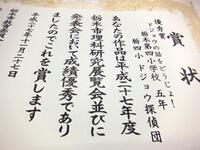 賞状
優秀賞
ドジョウの謎をどうじょ！
栃木第四小学校 五年
栃四小ドジョウ探偵団
あなたの作品は平成二十七年度
栃木市理科研究展覧会並びに
発表会において成績優秀であり
ましたのでこれを賞します
平成二十七年十一月二十七日